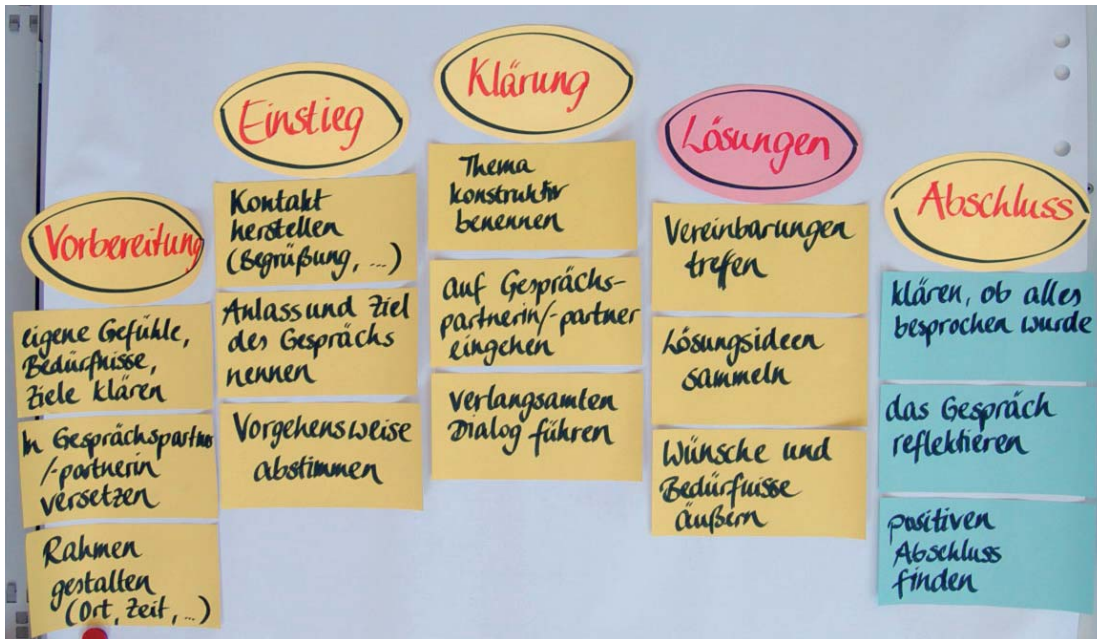 Vorbereitung
eigene Gefühle,
Bedürfnisse,
Ziele klären
In Gesprächspartner
/-partnerin
versetzen
Rahmen
gestalten
(Ort, Zeit, ...)
Einstieg
Kontakt
herstellen
(Begrüßung, ...)
Anlass und Ziel
des Gesprächs
nennen
Vorgehensweise
abstimmen
Klärung
Thema
konstruktiv
benennen
auf Gesprächs-
partnerin/-partner
eingehen
verlangsamten
Dialog führen
Lösungen
Vereinbarungen
treffen
Lösungsideen
sammeln
Wünsche und
Bedürfnisse
äußern
Abschluss
klären, ob alles
besprochen wurde
das Gespräch
reflektieren
positiven
Abschluss
finden